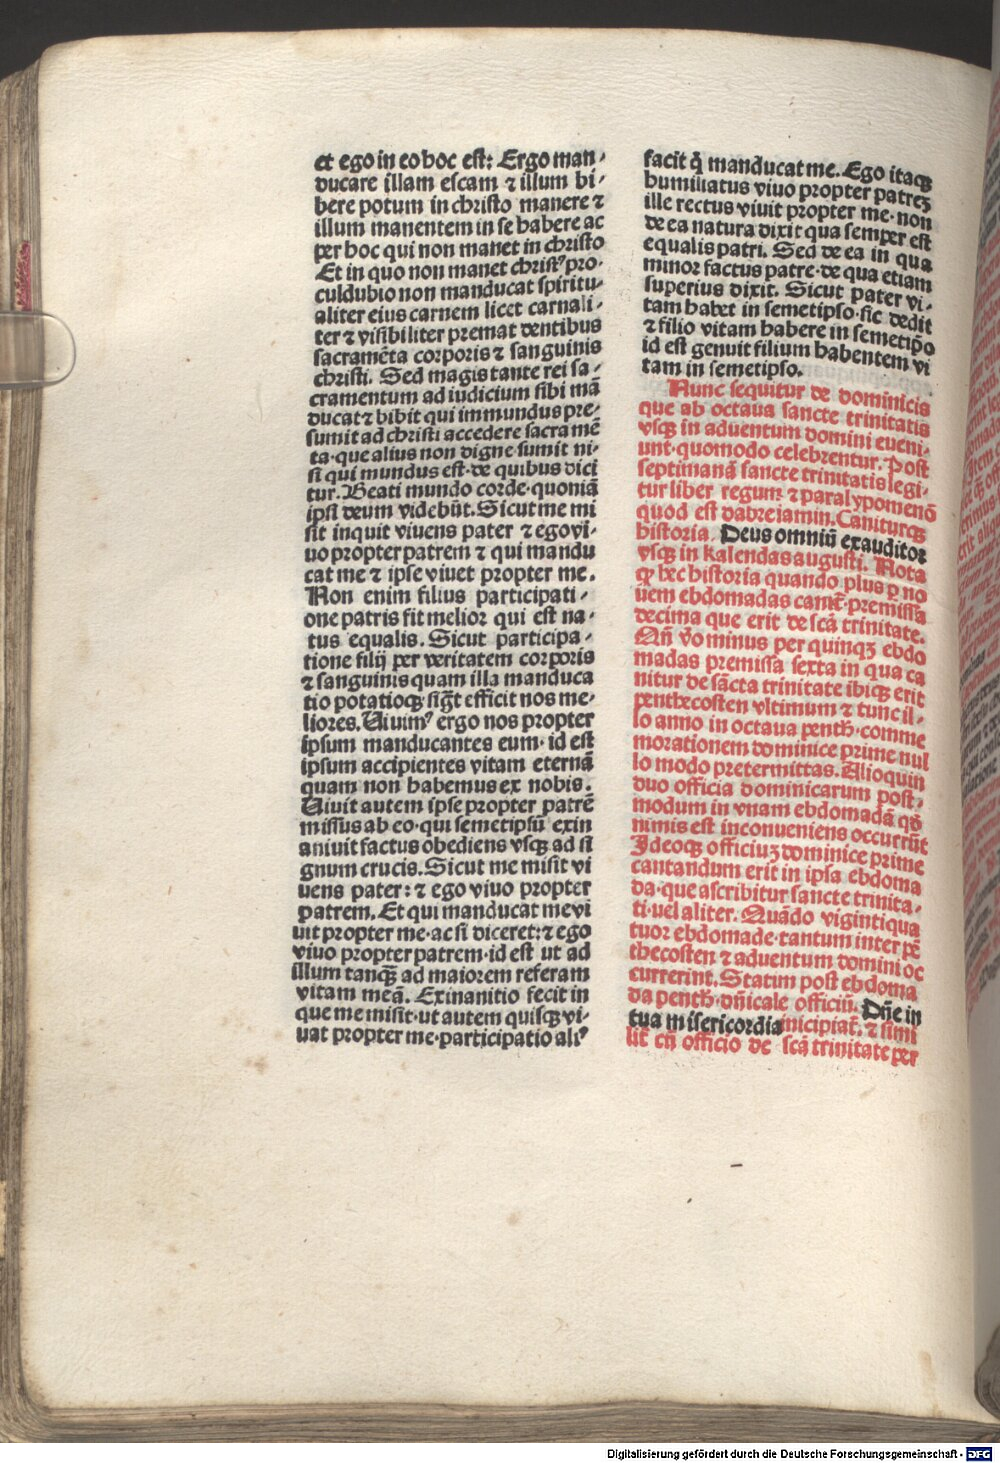 et ego in eo hoc est: Ergo man-
ducare illam escam ⁊ illum bi-
bere potum in christo manere ⁊
illum manentem in se habere ac
per hoc qui non manet in christo
Et in quo non manet christꝰ pro-
culdubio non manducat spiritu-
aliter eius carnem licet carnali-
ter ⁊ visibiliter premat dentibus
sacramēta corporis ⁊ sanguinis
christi. Sed magis tante rei sa-
cramentum ad iudicium sibi mā
ducat ⁊ bibit qui immundus pre-
sumit ad christi accedere sacramē
ta· que alius non digne sumit ni-
si qui mundus est· de quibus dici
tur. Beati mundo corde· quoniā
ipsi deum videbūt. Sicut me mi
sit inquit vivens pater ⁊ ego vi-
uo propter patrem ⁊ qui mandu
cat me ⁊ ipse vivet propter me.
Non enim filius participati-
one patris fit melior qui est na-
tus equalis. Sicut participa-
tione filij per veritatem corporis
⁊ sanguinis quam illa manduca
tio potatioqꝫ sigt̄ efficit nos me-
liores. Viuimꝰ ergo nos propter
ipsum manducantes eum· id est
ipsum accipientes vitam eternā
quam non habemus ex nobis.
Viuit autem ipse propter patrē
missus ab eo· qui semetipsū exin
aniuit factus obediens vsqꝫ ad li
gnum crucis. Sicut me misit vi
uens pater: ⁊ ego vivo propter
patrem. Et qui manducat me vi
uit propter me· ac si diceret: ⁊ ego
vivo propter patrem· id est ut ad
illum tanqꝫ ad maiorem referam
vitam meā. Exinanitio fecit in
que me misit· ut autem quisqꝫ vi-
uat propter me· participatio aliꝰ
facit q̄ manducat me. Ego itaqꝫ
humiliatus vivo propter patreꝫ
ille rectus vivit propter me· non
de ea natura dixit qua semper est
equalis patri. Sed de ea in qua
minor factus patre· de qua etiam
superius dixit. Sicut pater vi-
tam habet in semetipso· sic dedit
⁊ filio vitam habere in semetip̄o
id est genuit filium habentem vi
tam in semetipso.
Nunc sequitur de dominicis
que ab octaua sancte trinitatis
vsqꝫ in aduentum domini eueni-
unt· quomodo celebrentur. Post
septimanā sancte trinitatis legi-
tur liber regum ⁊ paralypomenō
quod est dabreiamin. Caniturqꝫ
historia. Deus omniū exauditor
vsqꝫ in kalendas augusti. Nota
qꝫ hec historia quando plus ꝑ no
uem ebdomadas canit̄· premissa
decima que erit de scā trinitate.
Qn̄ v̄o minus per quinqꝫ ebdo
madas premissa sexta in qua ca
nitur de sācta trinitate ibiqꝫ erit
penthecosten vltimum ⁊ tunc il-
lo anno in octaua penth̄· comme
morationem dominice prime nul
lo modo pretermittas. Alioquin
duo officia dominicarum post-
modum in vnam ebdomadā qd̄
nimis est inconueniens occurrūt
Ideoqꝫ officiuꝫ dominice prime
cantandum erit in ipsa ebdoma
da· que ascribitur sancte trinita-
ti· uel aliter. Quādo vigintiqua
tuor ebdomade· tantum inter pē
thecosten ⁊ aduentum domini oc
currerint. Statim post ebdoma
da penth̄· dn̄icale officiū. Dn̄e in
tua misericordia inicipiat̄. ⁊ simi
lit̄ cū officio de scā trinitate per
Digitalisierung gefördert durch die Deutsche Forschungsgemeinschaft - DFG